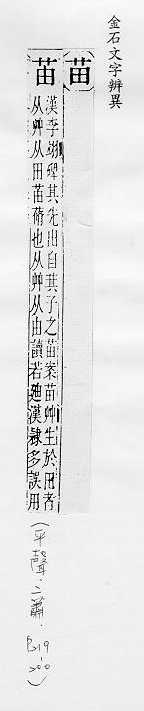 金石文字辨異
苗
苗
漢李翊碑其先出自其子之苗案苗艸生於田者
从艸从田苖蓨也从艸从由讀若迪漢隸多誤用
(平聲.二蕭.